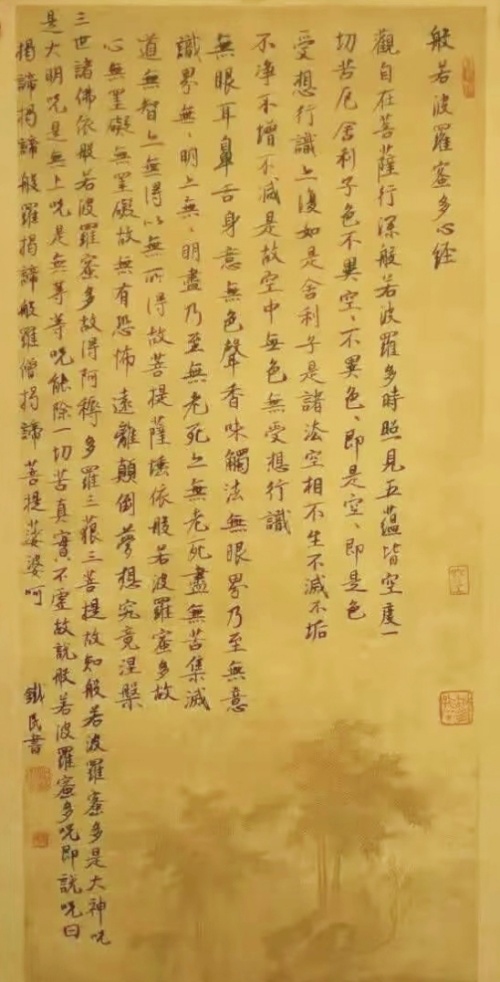 般若波羅蜜多心經
觀自在菩薩行深般若波羅多時照見五蘊皆空度一
切苦厄舍利子色不異空、不異色、即是空、即是色
受想行識亦復如是舍利子是諸法空相不生不滅不垢
不淨不增不減是故空中無色無受想行識
無眼耳鼻舌身意無色聲香味觸法無眼界乃至無意
識界無、明亦無、明盡乃至無老死亦無老死盡無苦集滅
道無智亦無得以無所得故菩提薩埵依般若波羅蜜多故
心無罣礙無罣礙故無有恐怖遠離顛倒夢想究竟涅槃
三世諸佛依般若波羅蜜多故得阿耨多羅三藐三菩提故知般若波羅蜜多是大神咒
是大明咒是無上咒是無等等咒能除一切苦真實不虛故說般若波羅蜜多咒即說咒曰
揭諦揭諦般羅揭諦般羅僧揭諦菩提莎婆呵
鐵民書